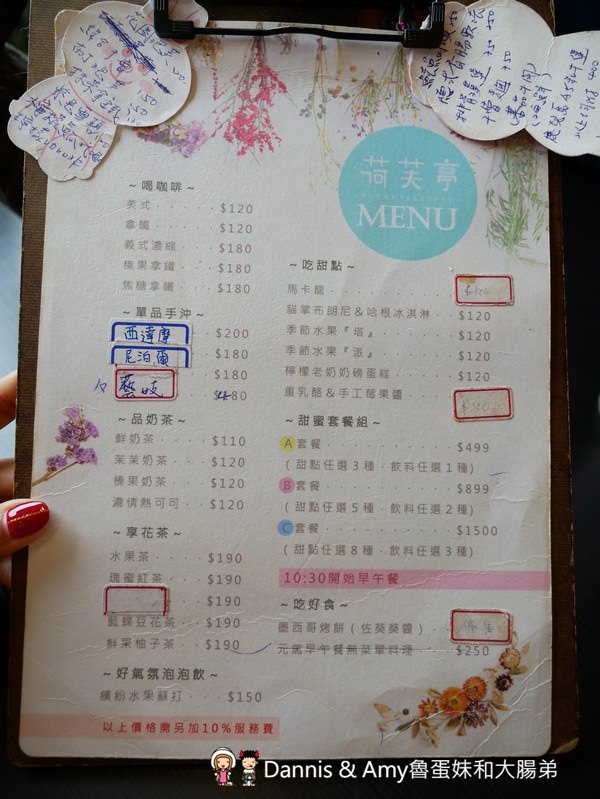 荷芙亭
MENU
~喝咖啡~
美式······$120
拿鐵······$120
義式濃縮···$180
榛果拿鐵···$180
焦糖拿鐵···$180
~單品手沖~
西達摩 $200
尼泊爾 $180
藝妓 $180
~品奶茶~
鮮奶茶····$110
茉茉奶茶···$120
榛果奶茶···$120
濃情熱可可··$120
~享花茶~
水果茶····$190
瑰蜜紅茶···$190
$190
藍蝶豆花茶··$190
鮮果柚子茶··$190
~好氣氛泡泡飲~
繽紛水果蘇打···$150
以上價格需另加10%服務費
~吃甜點~
馬卡龍
貓掌布朗尼&哈根冰淇淋··$120
季節水果『塔』····$120
季節水果『派』····$120
檸檬老奶奶磅蛋糕···$120
重乳酪&手工莓果醬
~甜蜜套餐組~
A套餐·······$499
(甜點任選3種,飲料任選1種)
B套餐·······$899
(甜點任選5種,飲料任選2種)
C套餐·······$1500
(甜點任選8種,飲料任選3種)
10:30開始早午餐
~吃好食~
墨西哥烤餅(佐葵葵醬)
元氣早午餐無菜單料理··$250
Dannis & Amy魯蛋妹和大腸弟